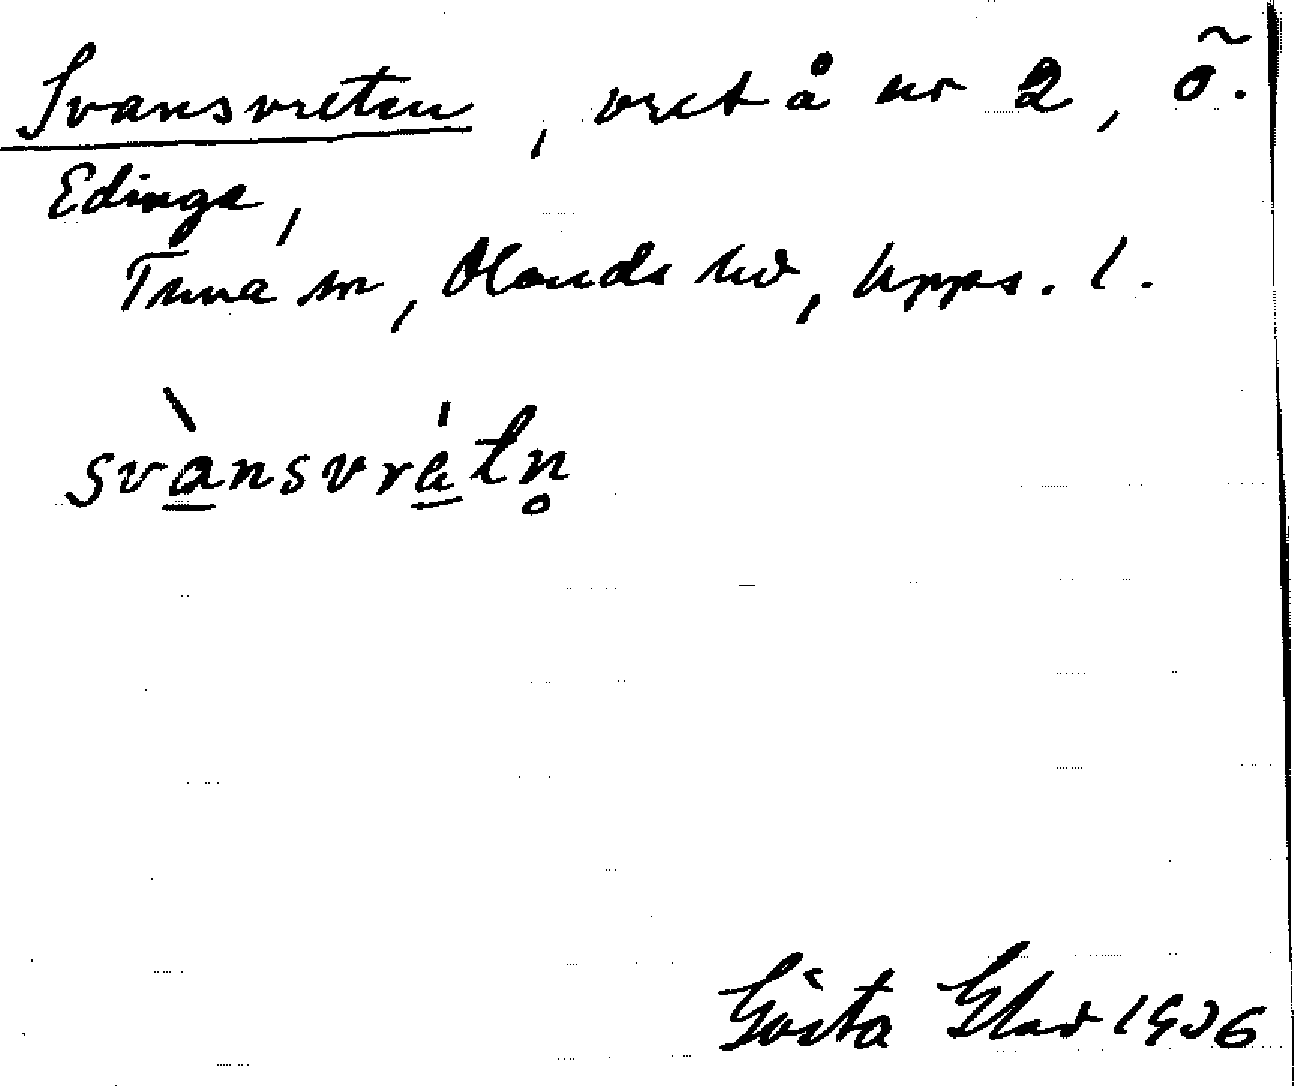 Svansvreten, vret å nr 2, Õ.
Edinge,
Tuna sn, Olands hd, Upps. l.
svànsvrà̱tn̥
Gösta Elad 1936